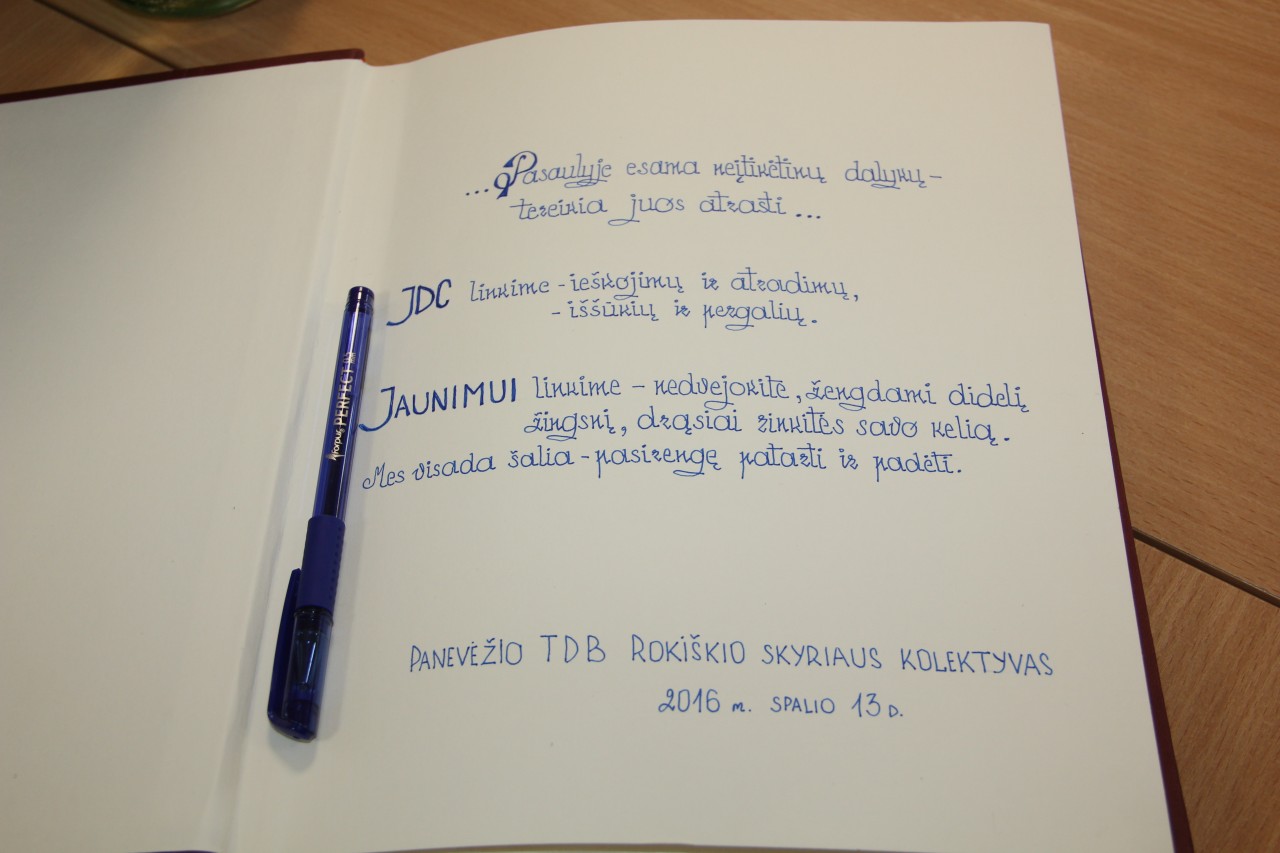 ...Pasaulyje esama neįtikėtinų dalykų-
tereikia juos atrasti...
JDC linkime - ieškojimų ir atradimų,
- iššūkių ir pergalių.
JAUNIMUI linkime - nedvejokite, žengdami didelį
žingsnį, drąsiai rinkitės savo kelią.
Mes visada šalia - pasirengę patarti ir padėti.
PANEVĖŽIO TDB ROKIŠKIO SKYRIAUS KOLEKTYVAS
2016 m. SPALIO 13 D.
forpus PERFECT